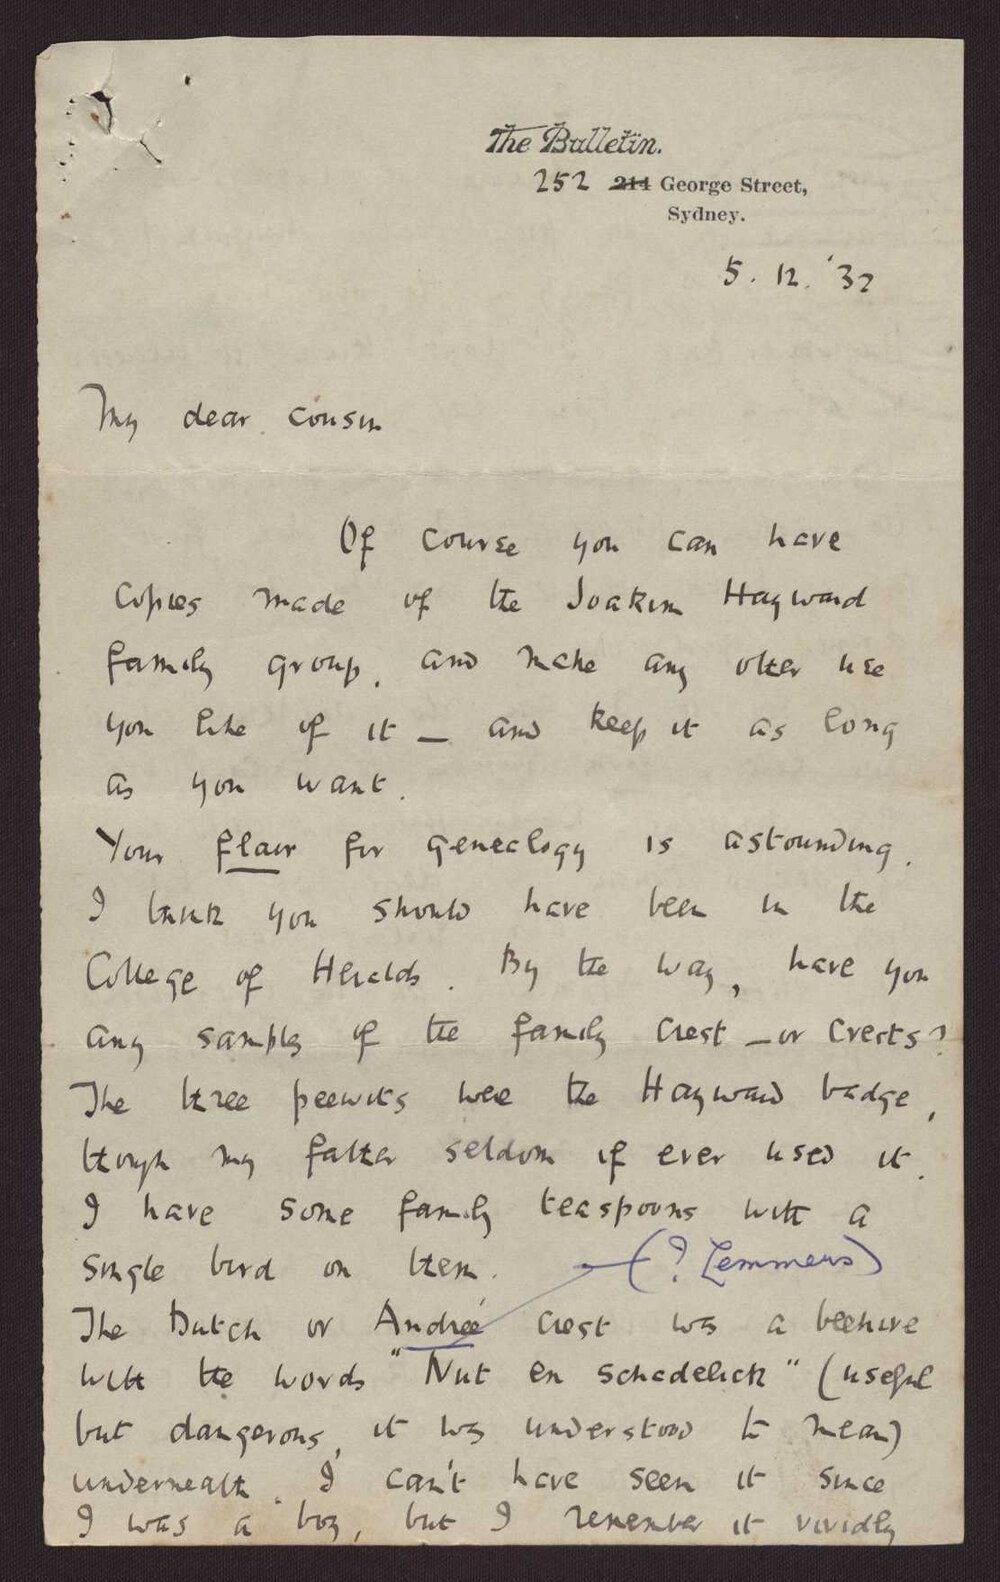 The Bulletin.
252 214 George Street,
Sydney.
5. 12. '32
My dear cousin
Of course you can have
copies made of the Joakim Hayward
family group, and make any other use
you like of it — and keep it as long
as you want.
Your flair for genealogy is astounding.
I think you should have been in the
College of Heralds. By the way, have you
any samples of the family crest — or crests?
The three peewits were the Hayward badge,
though my father seldom if ever used it.
I have some family teaspoons with a
single bird on them. (? Lemmers)
The Dutch or Andrée crest was a beehive
with the words "Nut en schadelick" (useful
but dangerous, it was understood to mean)
underneath. I can't have seen it since
I was a boy, but I remember it vividly